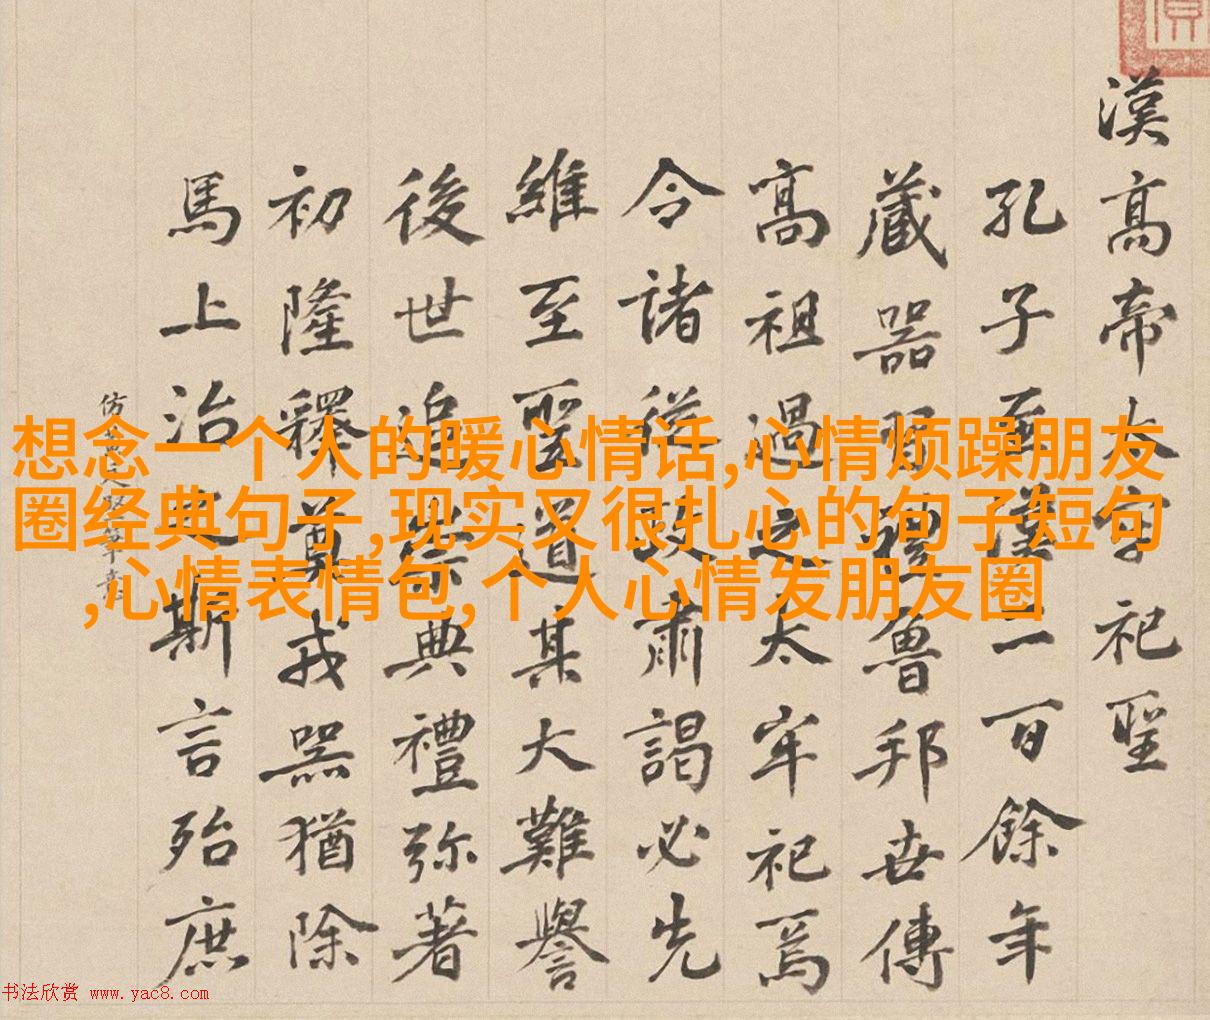 漢高帝太牢祀聖
孔子至漢二百餘年
藏器習禮魯邦世傳
高祖過之太牢祀焉
令諸從政肅謁必先
維至聖道其大難譽
後世追崇典禮弥著
初隆釋奠戎器猶除
馬上治之斯言殆庶
想念一个人的暖心情话,心情烦躁朋友
圈经典句子,现实又很扎心的句子短句
,心情表情包,个人心情发朋友圈
书法欣赏 www.yac8.com